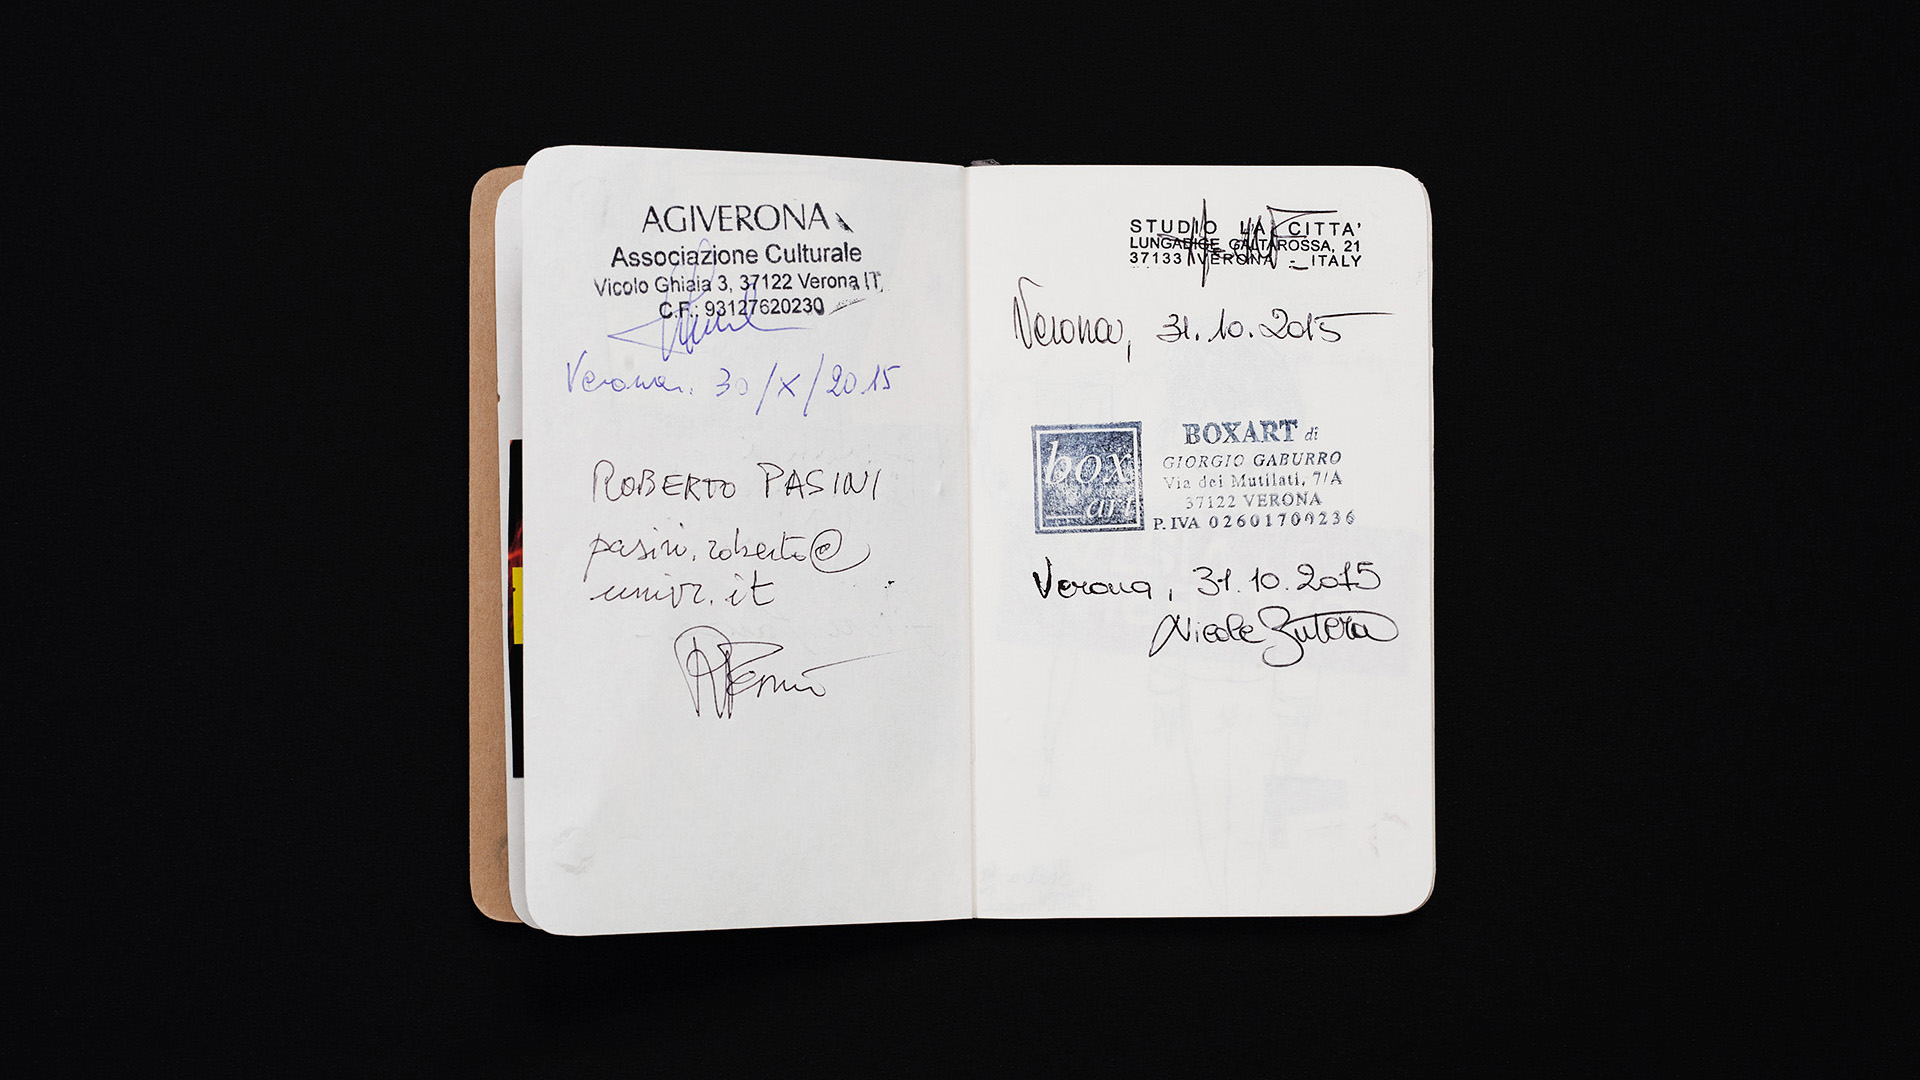 AGIVERONA
Associazione Culturale
Vicolo Ghiaia 3, 37122 Verona IT
C.F.: 93127620230
Verona. 30/X/2015
ROBERTO PASINI
pasini.roberto@
univr.it
STUDIO LA CITTA'
LUNGADIGE GALTAROSSA, 21
37133 VERONA - ITALY
Verona, 31.10.2015
box
art
BOXART di
GIORGIO GABURRO
Via dei Mutilati, 7/A
37122 VERONA
P. IVA 02601700236
Verona, 31.10.2015
Nicole